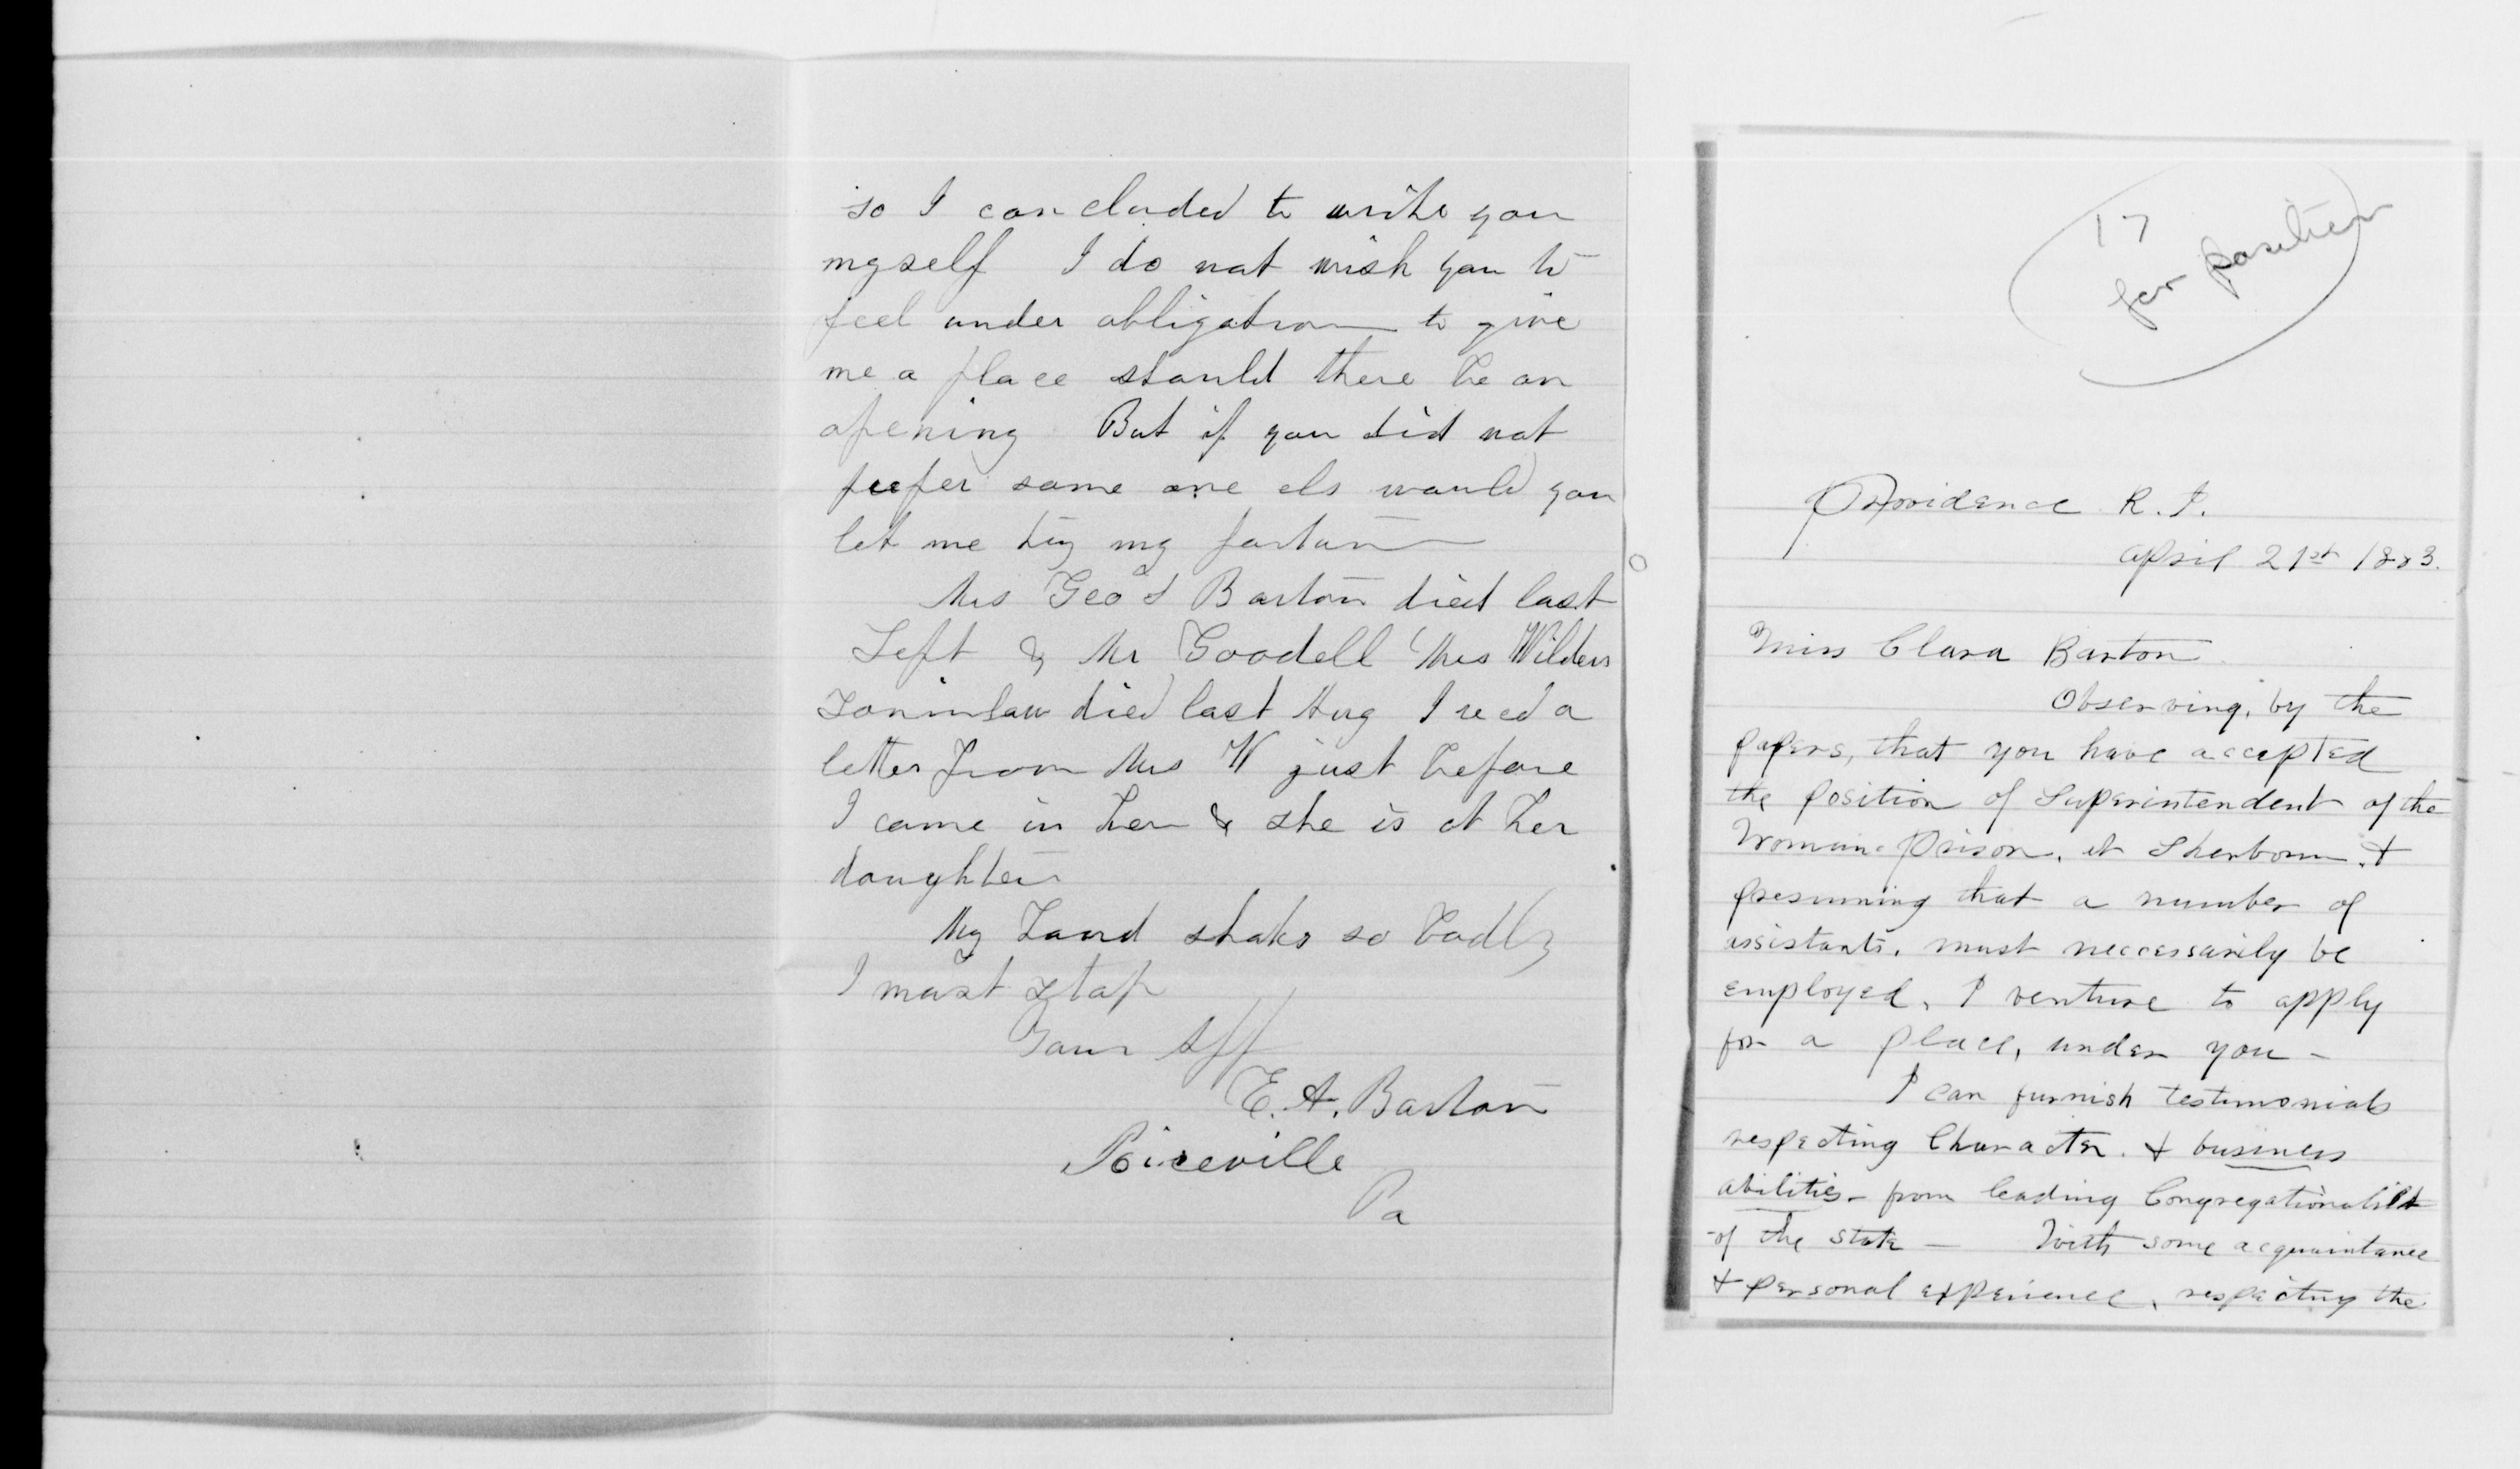 so I concluded to write you
myself I do not wish you to
feel under obligation to give
me a place should there be an
opening But if you did not
prefer some one els would you
let me try my fortune
Mrs Geo S Barton died last
Sept & Mr Goodell Mrs Wilders
Soninlaw died last Aug I recd a
letter from Mrs W just before
I came in her & she is at her
daughters
My hand shaks so badly
I must stop
Your Aff
E. A. Barton
Riceville
Pa
17
for position
Providence R. I.
April 21st 1883.
Miss Clara Barton
Observing, by the
papers, that you have accepted
the position of Superintendent of the
Womans Prison, at Sherborn. &
presuming that a number of
assistants, must neccessarily be
employed, I venture to apply
for a place, under you -
I can furnish testimonials
respecting Character. & business
abilities - from leading Congregationalist
of the state - With some acquaintance
& personal experience, respecting the